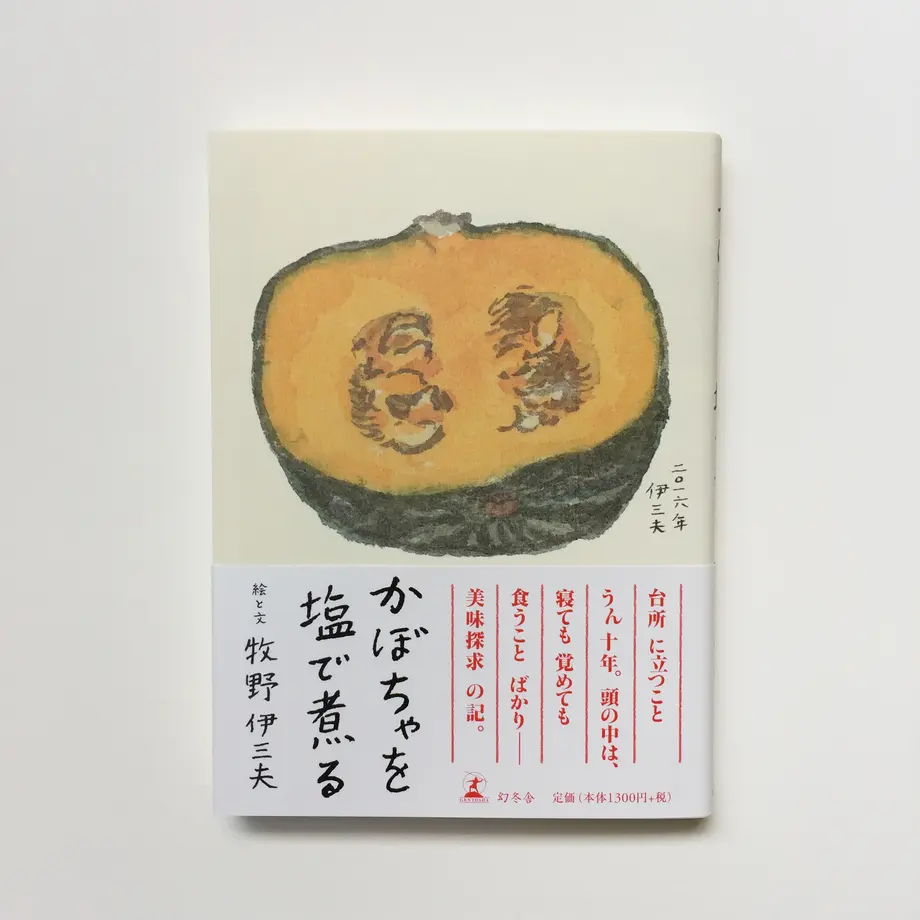 二〇一六年
伊三夫
かぼちゃを
塩で煮る
絵と文
牧野伊三夫
台所に立つこと
うん十年。頭の中は、
寝ても覚めても
食うことばかり——
美味探求の記。
GENTOSHA
幻冬舎
定価(本体1300円+税)